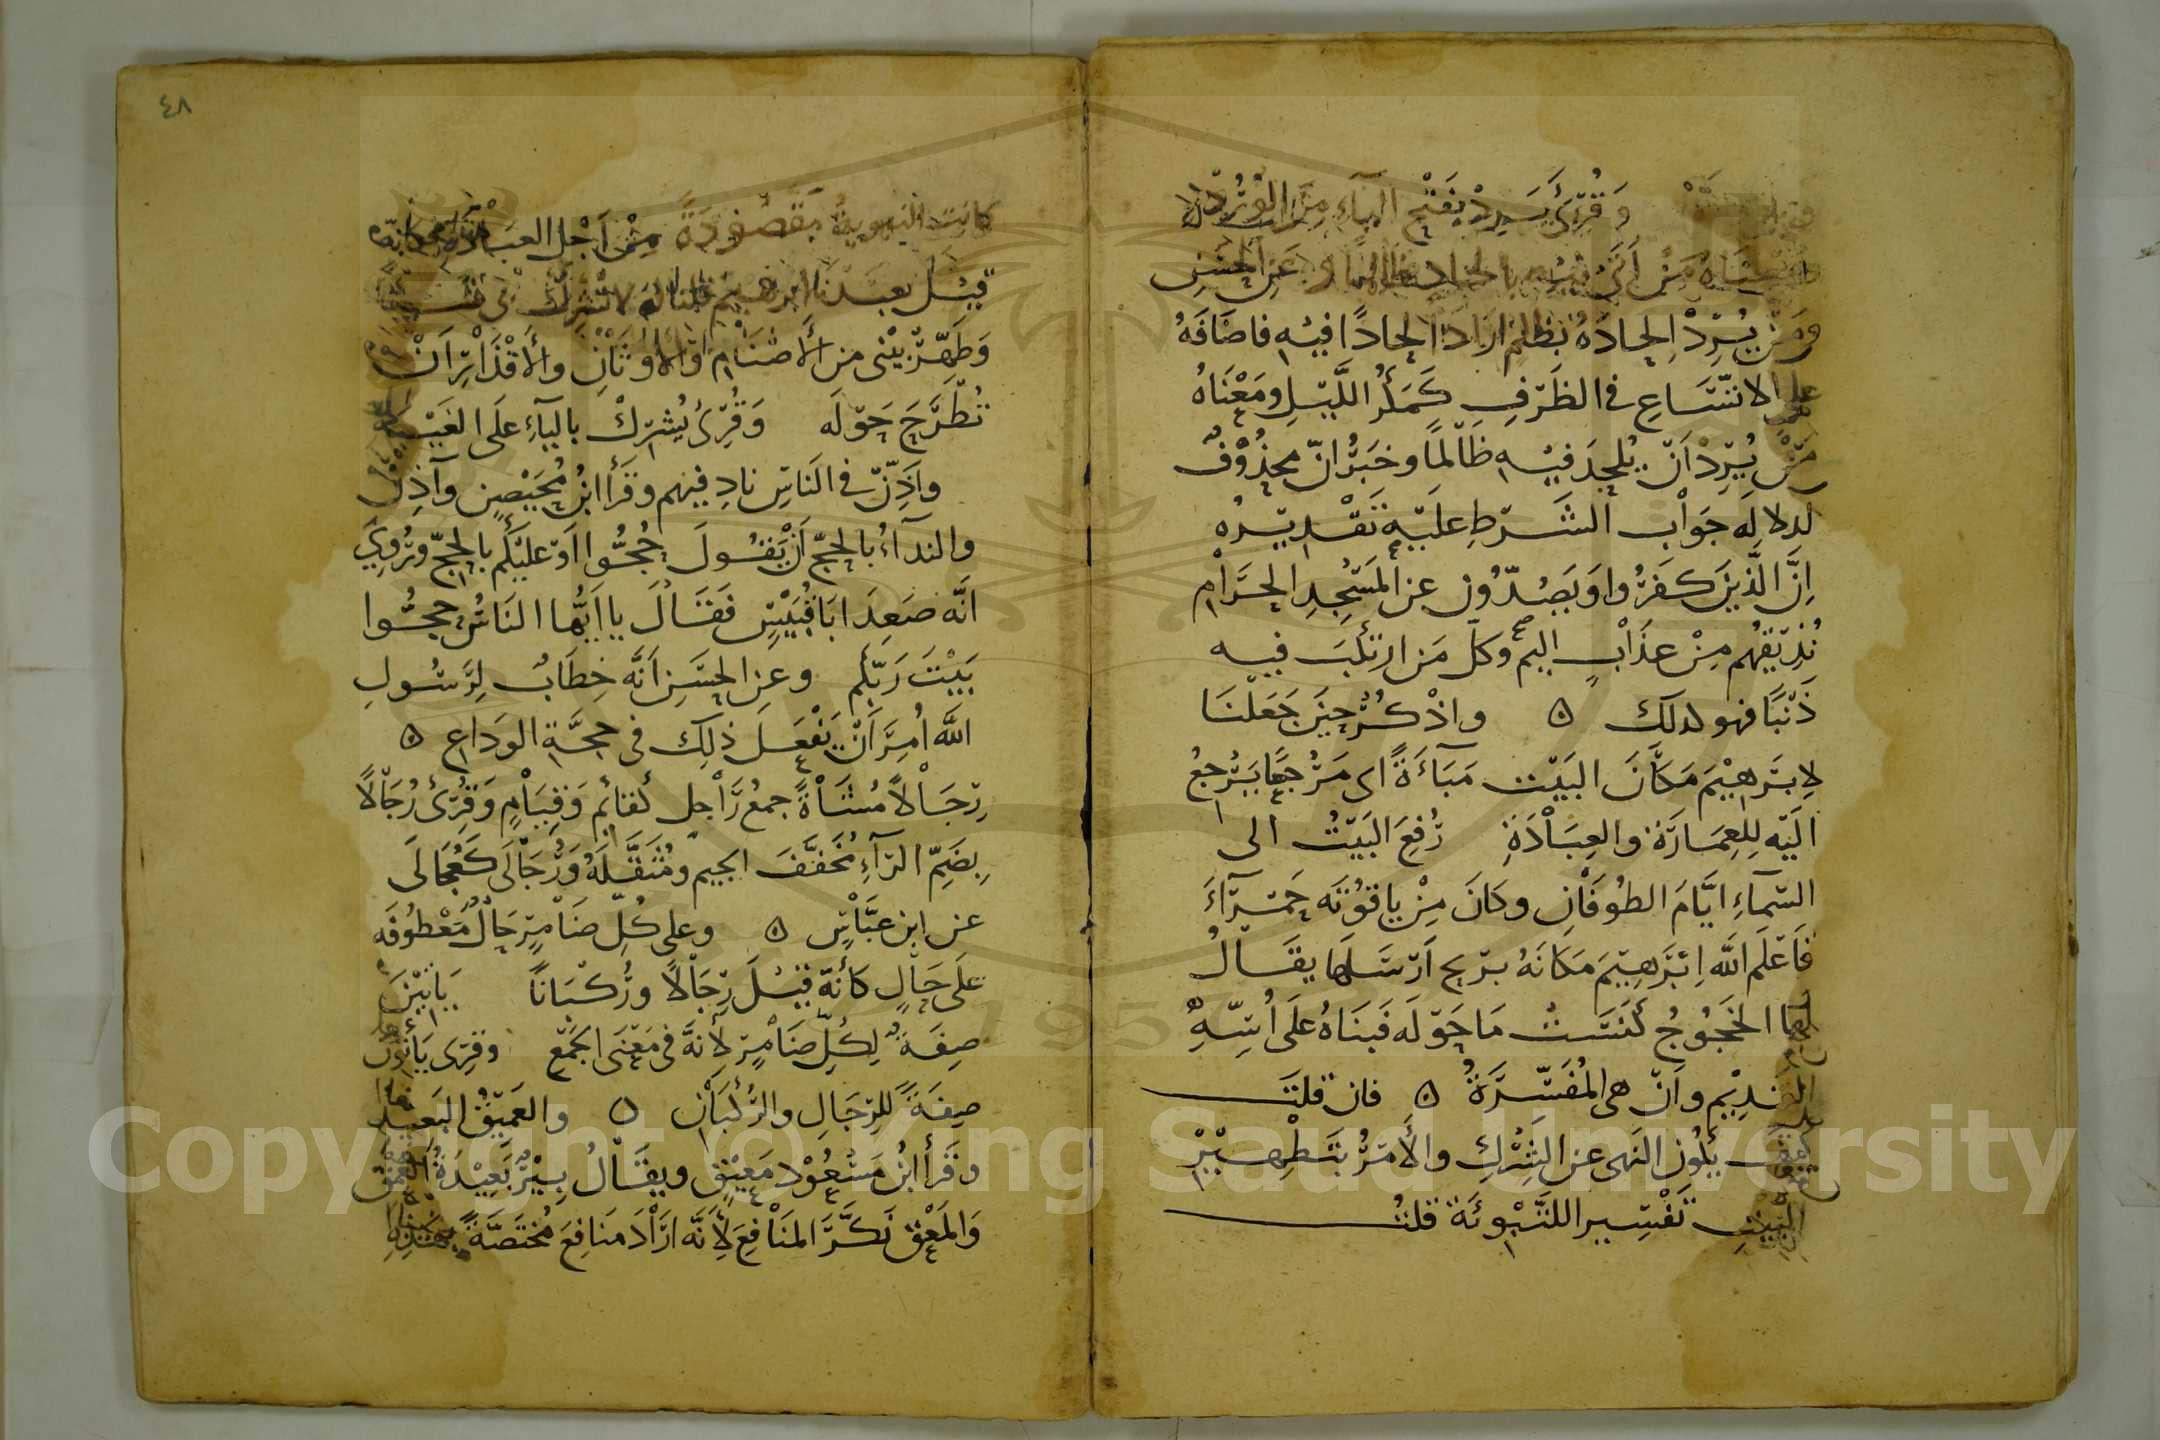 وَقُرِئَ يَرِدْ بفَتْحِ اليَاءِ مِنَ الوُرُودِ
وَمَعْنَاهُ مَنْ أَتَى فيه بالحاد ظالمًا وعن الحسن
ومَنْ يُرِدْ إلحادَهُ بظلم ارادَ الحادًا فيه فاضَافَهُ
على الاتّسَاعِ في الظَرْفِ كَمَكْرُ اللَّيْلِ ومَعْنَاهُ
مَنْ يُرِدْ اَنْ يُلحِدَ فيْه ظَالمًا وخَبَرُ انّ محذُوْفٌ
لدلالَه جَوَابِ الشَرْطِ علَيْهِ تَقْديْرُه
اِنَّ الَّذِينَ كفَرُوا وَيَصُدّوُن عن المَسْجِدِ الحَرَامِ
نُذِيْقُهم مِنْ عذَابٍ اليم وكلّ مَن ارتكَبَ فيه
ذَنْبًا فهو كذلك ۞ واذْكُرْ حِيْنَ جَعَلنَا
لاِبرَهِيْمَ مَكَانَ البَيْت مَبَآءَةً اى مَرْجعًا يَرْجعُ
الَيْه لِلعِمَارَة والعِبَادَةِ رُفِعَ البَيْتُ الى
السّمآءِ ايَّامَ الطوُفَانِ وكَانَ مِنْ ياقوُتَه حَمْرَآءَ
فَاَعْلَم اللّه اِبْرَهِيْمَ مَكَانَهُ بريح اَرْسَلَها يقَالُ
لهَا الخَجُوُجُ كَنَسَتْ مَا حَوْلَه فَبَنَاهُ علَى اُسِّهِ
القَدِيْم وأنْ هى المُفَسِّرَةُ ۞ فان قلتَ
كيف يكُون النَهى عن الشِرْكِ والأَمْرُ بتَطْهِيْرِ
البَيْتِ تَفْسِير اللتَبْوِئَة قلتُ
٤٨
كانت التبوية مقصُودَةً مِنْ اَجْل العبَادَة فكانه
قِيْلَ تعبّدنا ابرهيم قلنا له لا تشْرِكْ بى شيئا
وَطَهِّرْ بيْتى من الأصْنَام والأوْثَانِ والأقْذَارِ اَنْ
تُطْرَحَ حَوْلَه وَقُرِئَ يُشْرِكْ باليآءِ علَى الغَيْبَة
واَذِّنْ فى النَاسِ نادِ فيهم وقَرَأ ابنُ مُحَيْصِن وآذِنْ
والندآءُ بالحجّ اَنْ يَقُولَ حُجُّوا اَوْ علَيْكُم بالحجّ ورُوِىَ
انّه صَعِدَ ابَا قُبَيْسٍ فَقَالَ يا اَيُّها النَاسُ حجُّوا
بَيْتَ رَبّكُم وعن الحسَنِ اَنَّه خِطَابٌ لِرَسُولِ
اللَّه اُمِرَ اَنْ يَفْعَلَ ذلِك فى حجَّة الوَدَاع ۞
رِجَالاً مُشَاةً جمعُ رَاجل كقَائِم وَقِيَامٍ وَقُرِئَ رُجَالًا
بِضَمّ الرآءِ مُخَفَّفَ الجيم ومُثَقَّلَهُ وَرُجَالَى كَعُجَالَى
عن ابن عبَّاسٍ ۞ وعلى كُلّ ضَامِرٍ حَالٌ مَعْطُوفَه
علَى حَالٍ كَأنّه قيْلَ رِجَالاً ورُكْبَانًا يَاتِيْنَ
صِفَةٌ لِكُلّ ضَامِرٍ لأنهَّ فى مَعْنَى الجَمْعِ وقرِئ يَأتُونَ
صِفَةً للرِجَالِ والرُكْبَانِ ۞ والعَمِيْقُ البَعيد
وقَرَأ ابنُ مَسْعُوْدٍ مَعِيْقٍ ويقَالُ بِيْرٌ بَعِيْدَةُ العُمْقِ
وَالمَعْقِ نَكَّرَ المنَافِعَ لأنَّه ارَادَ مَنافِعَ مُخْتَصَّةً بهَذِهِ
Copyright © King Saud University
1957